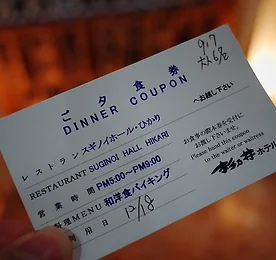 ご夕食券
DINNER COUPON
レストラン スギノイホール・ひかり
RESTAURANT SUGINOI HALL HIKARI
へお越し下さい
営業時間 PM5:00～PM9:00
料理MENU 和洋食バイキング
用日 12/18
お食事の際本券を受付に
お渡し下さいませ。
Please hand this coupon
to the waiter or waitress
杉乃井ホテル